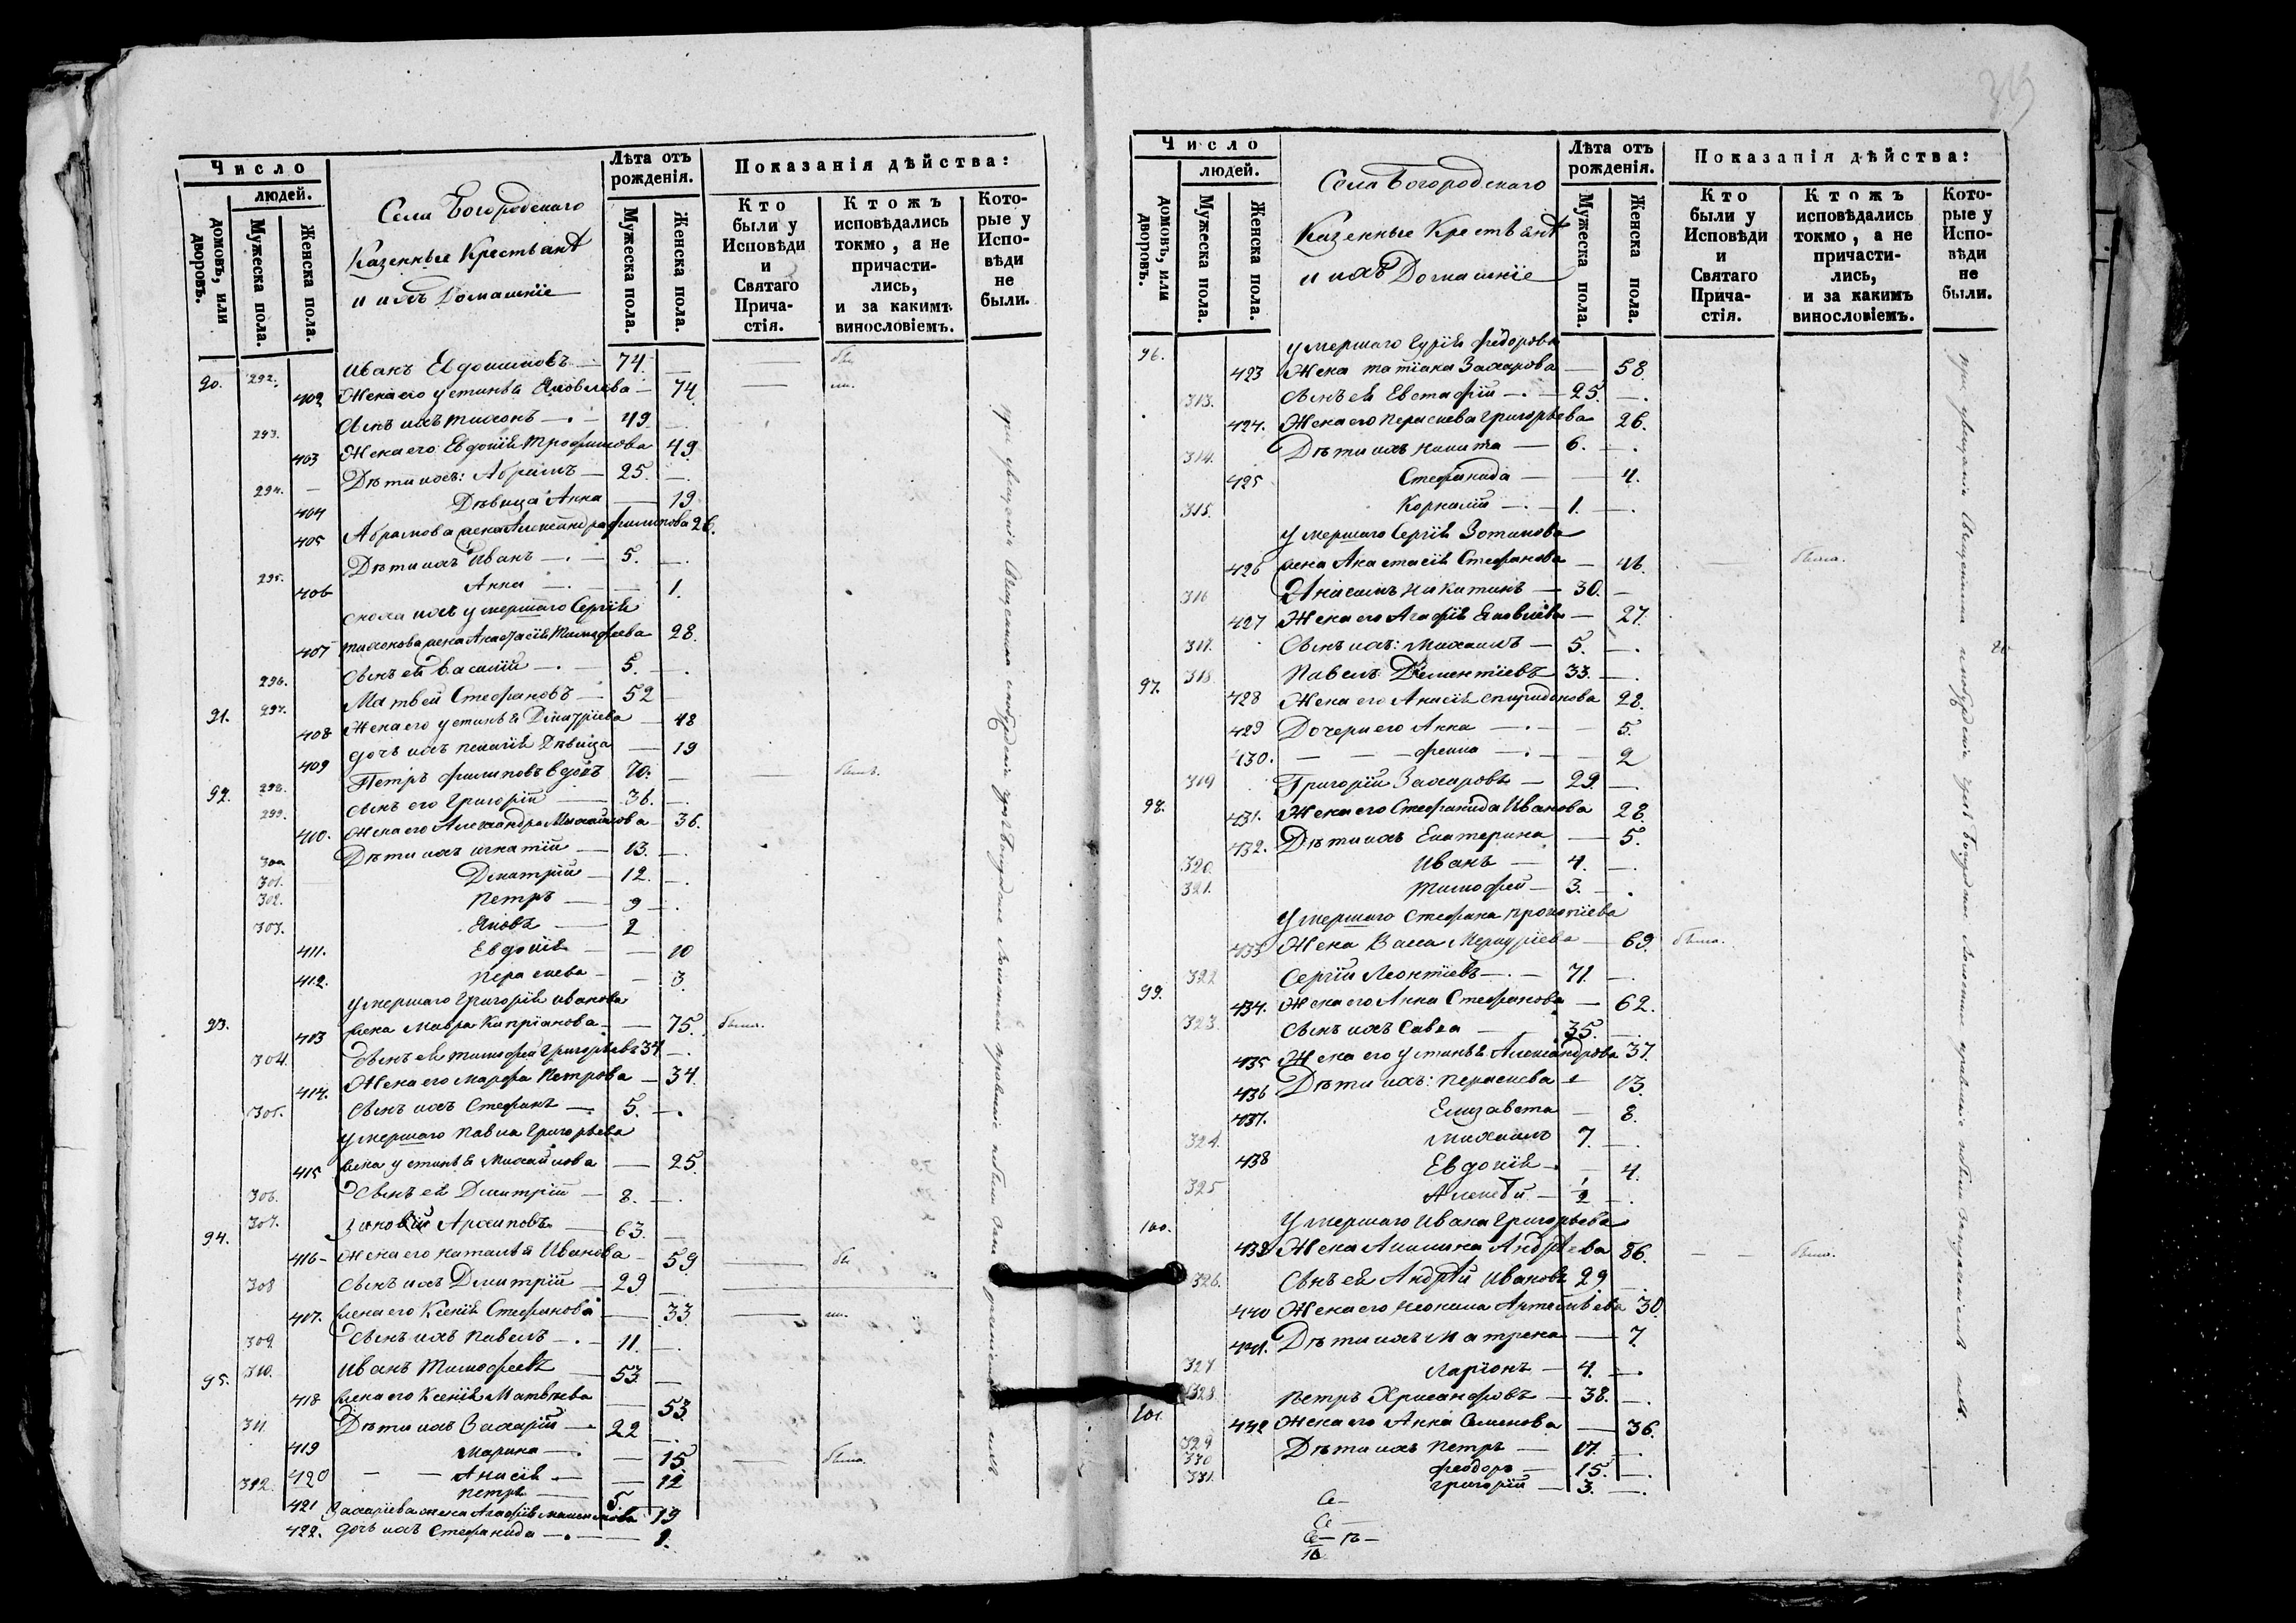 Число
людей.
домовъ, или дворовъ.
Мужеска пола.
Женска пола.
Села Богородскаго
Казенные Крестьянѣ
и ихъ Домашніе
Лѣта отъ рожденія.
Мужеска пола.
Женска пола.
Показанія дѣйства:
Кто были у Исповѣди и Святаго Прича-стія.
Ктожъ исповѣдались токмо, а не причасти-лись, и за какимъ винословіемъ.
Кото-рые у Испо-вѣди не были.
90. 292. Иванъ Евдокимовъ — 74. —
402 Жена его Устинья Яковлева — 74
293. Сынъ ихъ Тихонъ — 49 —
403 Жена его Евдокія Трофимова 49
294. — Дѣти ихъ: Абрамъ — 25. —
404 Дѣвица Анна — 19
405 Абрамова жена Александра Филипова 26.
295. Дѣти ихъ Иванъ — 5. —
406 Анна — 1.
Сноха ихъ умершаго Сергія
407 Тихонова жена Анастасія Тимофеева 28.
296. Сынъ ей Василій — 5. —
91. 297. Матвей Стефановъ — 52 —
408 Жена его Устинья Дмитріева — 48
409 Дочь ихъ Пелагія Дѣвица — 19
92. 298. Петръ Филиповъ вдовъ 70. — — былъ.
299. Сынъ его Григорій — 36. —
410. Жена его Александра Михайлова 36.
300. Дѣти ихъ Игнатій — 13. —
301. Димитрій — 12. —
302. Петръ — 9 —
303. Яковъ — 2
411. Евдокія — 10
412. Параскева — 3
Умершаго Григорія Иванова
93. 413 жена Мавра Кипріанова — 75. была.
304. Сынъ ей Тимофей Григорьевъ 34 —
414. Жена его Марфа Петрова — 34.
305. Сынъ ихъ Стефанъ — 5. —
Умершаго Павла Григорьева
415 жена Устинья Михайлова — 25.
306. Сынъ ей Димитрій — 8. —
94. 307. Зиновій Архиповъ — 63. —
416 Жена его Наталья Иванова — 59
308 Сынъ ихъ Димитрій — 29 —
417. жена его Ксенія Стефанова — 33
309. Сынъ ихъ Павелъ — 11. —
95. 310. Иванъ Тимофеевъ 53 —
418 жена его Ксенія Матвѣева 53
311 Дѣти ихъ Захарій — 22 —
419 Марина — 15 — была.
420 — — Анисія — 12
312. Петръ — 5. —
421 Захаріева жена Агафія 19
422. Дочь ихъ Стефанида — 1.
Число
людей.
домовъ, или дворовъ.
Мужеска пола.
Женска пола.
Села Богородскаго
Казенные Крестьянѣ
и ихъ Домашніе
Лѣта отъ рожденія.
Мужеска пола.
Женска пола.
Показанія дѣйства:
Кто были у Исповѣди и Святаго Прича-стія.
Ктожъ исповѣдались токмо, а не причасти-лись, и за какимъ винословіемъ.
Кото-рые у Испо-вѣди не были.
96. Умершаго Гурія Федорова
423 Жена Татіана Захарова — 58
313. Сынъ ей Евстафій — 25. —
424. Жена его Параскева Григорьева 26.
314. Дѣти ихъ Никита — 6. —
425 Стефанида — 4.
315. Корнилій — 1. —
Умершаго Сергія Зотикова
426 жена Анастасія Стефанова — 46 — была.
316 Анисимъ Никитинъ — 30. —
427 Жена его Агафія Яковлева — 27.
317. Сынъ ихъ: Михаилъ — 5. —
97. 318. Павелъ Дементіевъ 33. —
428 Жена его Анисія Спиридонова 28.
429 Дочери его Анна — 5.
430. — — Фекла — 2
98. 319 Григорій Захаровъ — 29. —
431. Жена его Стефанида Иванова 28.
432. Дѣти ихъ Екатерина — 5.
320. Иванъ — 4. —
321. Тимофей — 3. —
Умершаго Стефана Прокопіева
433 Жена Васса Меркуріева — 69. была.
99. 322 Сергій Леонтіевъ — 71. —
434. Жена его Анна Стефанова — 62.
323. Сынъ ихъ Савва 35. —
435 Жена его Устинья Александрова 37.
436 Дѣти ихъ: Параскева 13.
437. Елизавета — 8.
324. Михаилъ 7. —
438 Евдокія — 4.
325 Алексѣй — 2 —
100. Умершаго Ивана Григорьева
439 Жена Акилина Андрѣева 86. — — была.
326. Сынъ ей Андрѣй Ивановъ 29 —
440 Жена его Неонила 30
441. Дѣти ихъ Матрена — 7.
327 Ларіонъ — 4. —
101. 328. Петръ Хрисанфовъ — 38. —
442 Жена его Анна Семенова — 36.
329 Дѣти ихъ Петръ — 17. —
330 Феодоръ — 15. —
331. Григорій — 3. —